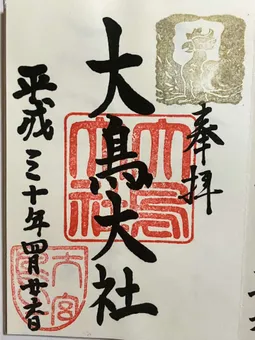 奉拝
大鳥大社
大鳥
大社
平成三十年四月廿